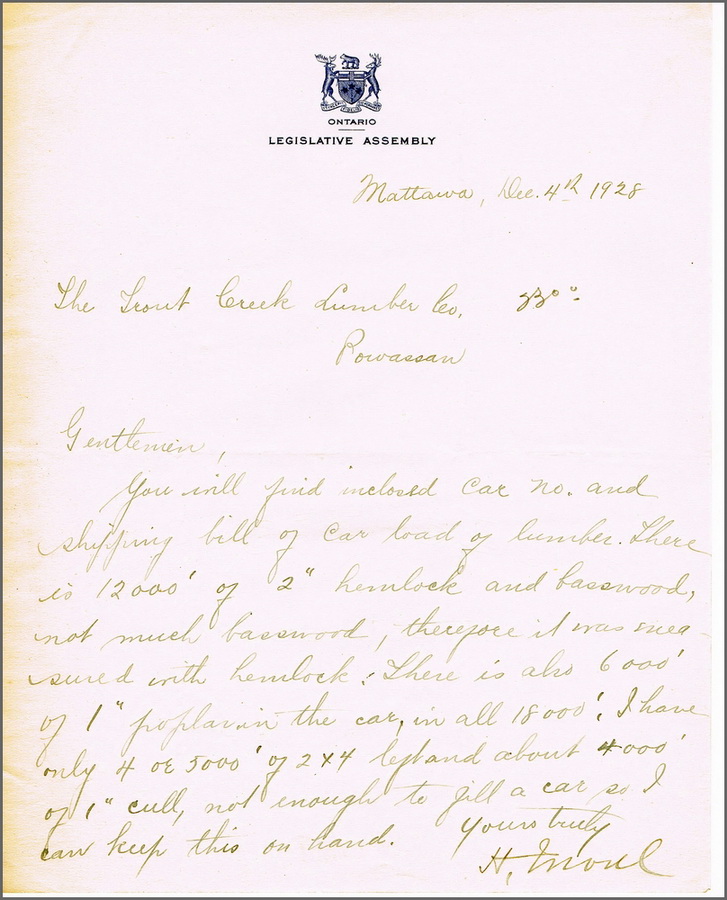 ONTARIO
LEGISLATIVE ASSEMBLY
Mattawa, Dec. 4th 1928
The Trout Creek Lumber Co.
Powassan
Gentlemen,
You will find inclosed Car No. and
shipping bill of Car load of lumber. There
is 12000' of 2" hemlock and basswood,
not much basswood, therefore it was mea-
sured with hemlock. There is also 6000'
of 1" poplar in the car, in all 18000'. I have
only 4 or 5000' of 2x4 left and about 4000'
of 1" cull, not enough to fill a car so I
can keep this on hand. Yours truly
H.